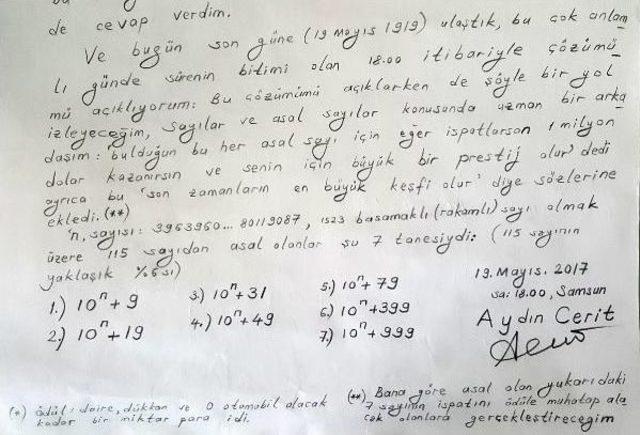 de cevap verdim.
Ve bugün son güne (19 Mayıs 1919) ulaştık, bu çok anlam
lı günde sürenin bitimi olan 18.00 itibariyle çözümü
mü açıklıyorum: Bu çözümümü açıklarken de şöyle bir yol
izleyeceğim, sayılar ve asal sayılar konusunda uzman bir arka
daşım: 'bulduğun bu her asal sayı için eğer ispatlarsan 1 milyon
dolar kazanırsın ve senin için büyük bir prestij olur' dedi
ayrıca bu 'son zamanların en büyük keşfi olur' diye sözlerine
ekledi. (**)
'n, sayısı: 3963960... 80119087, 1523 basamaklı (rakamlı) sayı olmak
üzere 115 sayıdan asal olanlar şu 7 tanesiydi: (115 sayının
yaklaşık %6 sı)
1.) 10ⁿ+9
2.) 10ⁿ+19
3.) 10ⁿ+31
4.) 10ⁿ+49
5.) 10ⁿ+79
6.) 10ⁿ+399
7.) 10ⁿ+999
19. Mayıs. 2017
sa: 18.00, Samsun
Aydın Cerit
(*) ödül: daire, dükkan ve 0 otomobil alacak
kadar bir miktar para idi.
(**) Bana göre asal olan yukarıdaki
7 sayının ispatını ödüle muhatap ala
cak olanlara gerçekleştireceğim